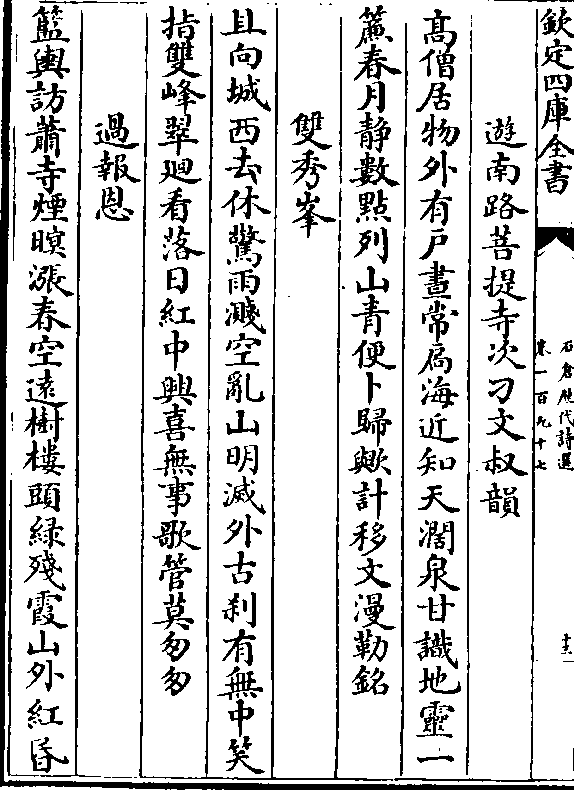 欽定四庫全書
石倉歷代詩選
卷一百九十七
十三
遊南路菩提寺次刁文叔韻
高僧居物外有戸晝常扃海近知天濶泉甘識地靈一
簾春月静數點列山青便卜歸歟計移文漫勒銘
雙秀峯
且向城西去休驚雨濺空亂山明滅外古刹有無中笑
指雙峰翠廻看落日紅中興喜無事歌管莫匆匆
過報恩
籃輿訪蕭寺煙暝漲春空遠樹樓頭緑殘霞山外紅昏